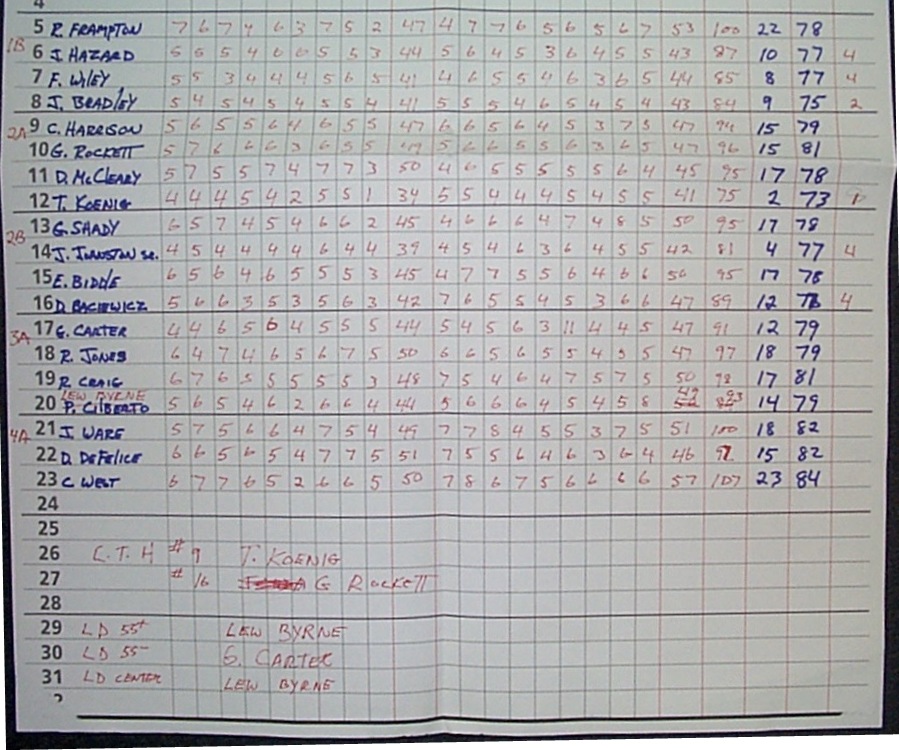 4
5 R. FRAMPTON 7 6 7 4 6 3 7 5 2 47 4 7 7 6 5 6 5 6 7 53 100 22 78
1B
6 J. HAZARD 5 5 5 4 6 6 5 5 3 44 5 6 4 5 3 6 4 5 5 43 87 10 77 4
7 F. WILEY 5 5 3 4 4 4 5 6 5 41 4 6 5 5 4 6 3 6 5 44 85 8 77 4
8 J. BRADLEY 5 4 5 4 5 4 5 5 4 41 5 5 5 4 6 5 4 5 4 43 84 9 75 2
2A
9 C. HARRISON 5 6 5 5 6 4 6 5 5 47 6 6 5 6 4 5 3 7 5 47 94 15 79
10 G. ROCKETT 5 7 6 6 6 3 6 5 5 49 5 6 6 5 5 6 3 6 5 47 96 15 81
11 D. McCLEARY 5 7 5 5 7 4 7 7 3 50 4 6 5 5 5 5 5 6 4 45 95 17 78
12 T. KOENIG 4 4 4 5 4 2 5 5 1 34 5 5 4 4 4 5 4 5 5 41 75 2 73
13 G. SHADY 6 5 7 4 5 4 6 6 2 45 4 6 6 6 4 7 4 8 5 50 95 17 78
2B
14 J. JOHNSTON SR. 4 5 4 4 4 4 6 4 4 39 4 5 4 6 3 6 4 5 5 42 81 4 77 4
15 E. BIDDLE 6 5 6 4 6 5 5 5 3 45 4 7 7 5 5 6 4 6 6 50 95 17 78
16 D. BACIEWICZ 5 6 6 3 5 3 5 6 3 42 7 6 5 5 4 5 3 6 6 47 89 12 78 4
17 G. CARTER 4 4 6 5 6 4 5 5 5 44 5 4 5 6 3 11 4 4 5 47 91 12 79
3A
18 R. JONES 6 4 7 4 6 5 6 7 5 50 6 6 5 6 5 5 4 5 5 47 97 18 79
19 R CRAIG 6 7 6 5 5 5 5 5 3 48 7 5 4 6 4 7 5 7 5 50 98 17 81
LEW BYRNE 49 93
20 P. GILBERTO 5 6 5 4 6 2 6 6 4 44 5 6 6 6 4 5 4 5 8 14 79
21 J. WARE 5 7 5 6 6 4 7 5 4 49 7 7 8 4 5 5 3 7 5 51 100 18 82
4A
22 D. DEFELICE 6 6 5 6 5 4 7 7 5 51 7 5 5 6 4 6 3 6 4 46 97 15 82
23 C WEST 6 7 7 6 5 2 6 6 5 50 7 8 6 7 5 6 6 6 6 57 107 23 84
24
25
26 C. T. H # 9 T. KOENIG
27 # 16 G ROCKETT
28
29 LD 55+ LEW BYRNE
30 LD 55- G. CARTER
31 LD CENTER LEW BYRNE